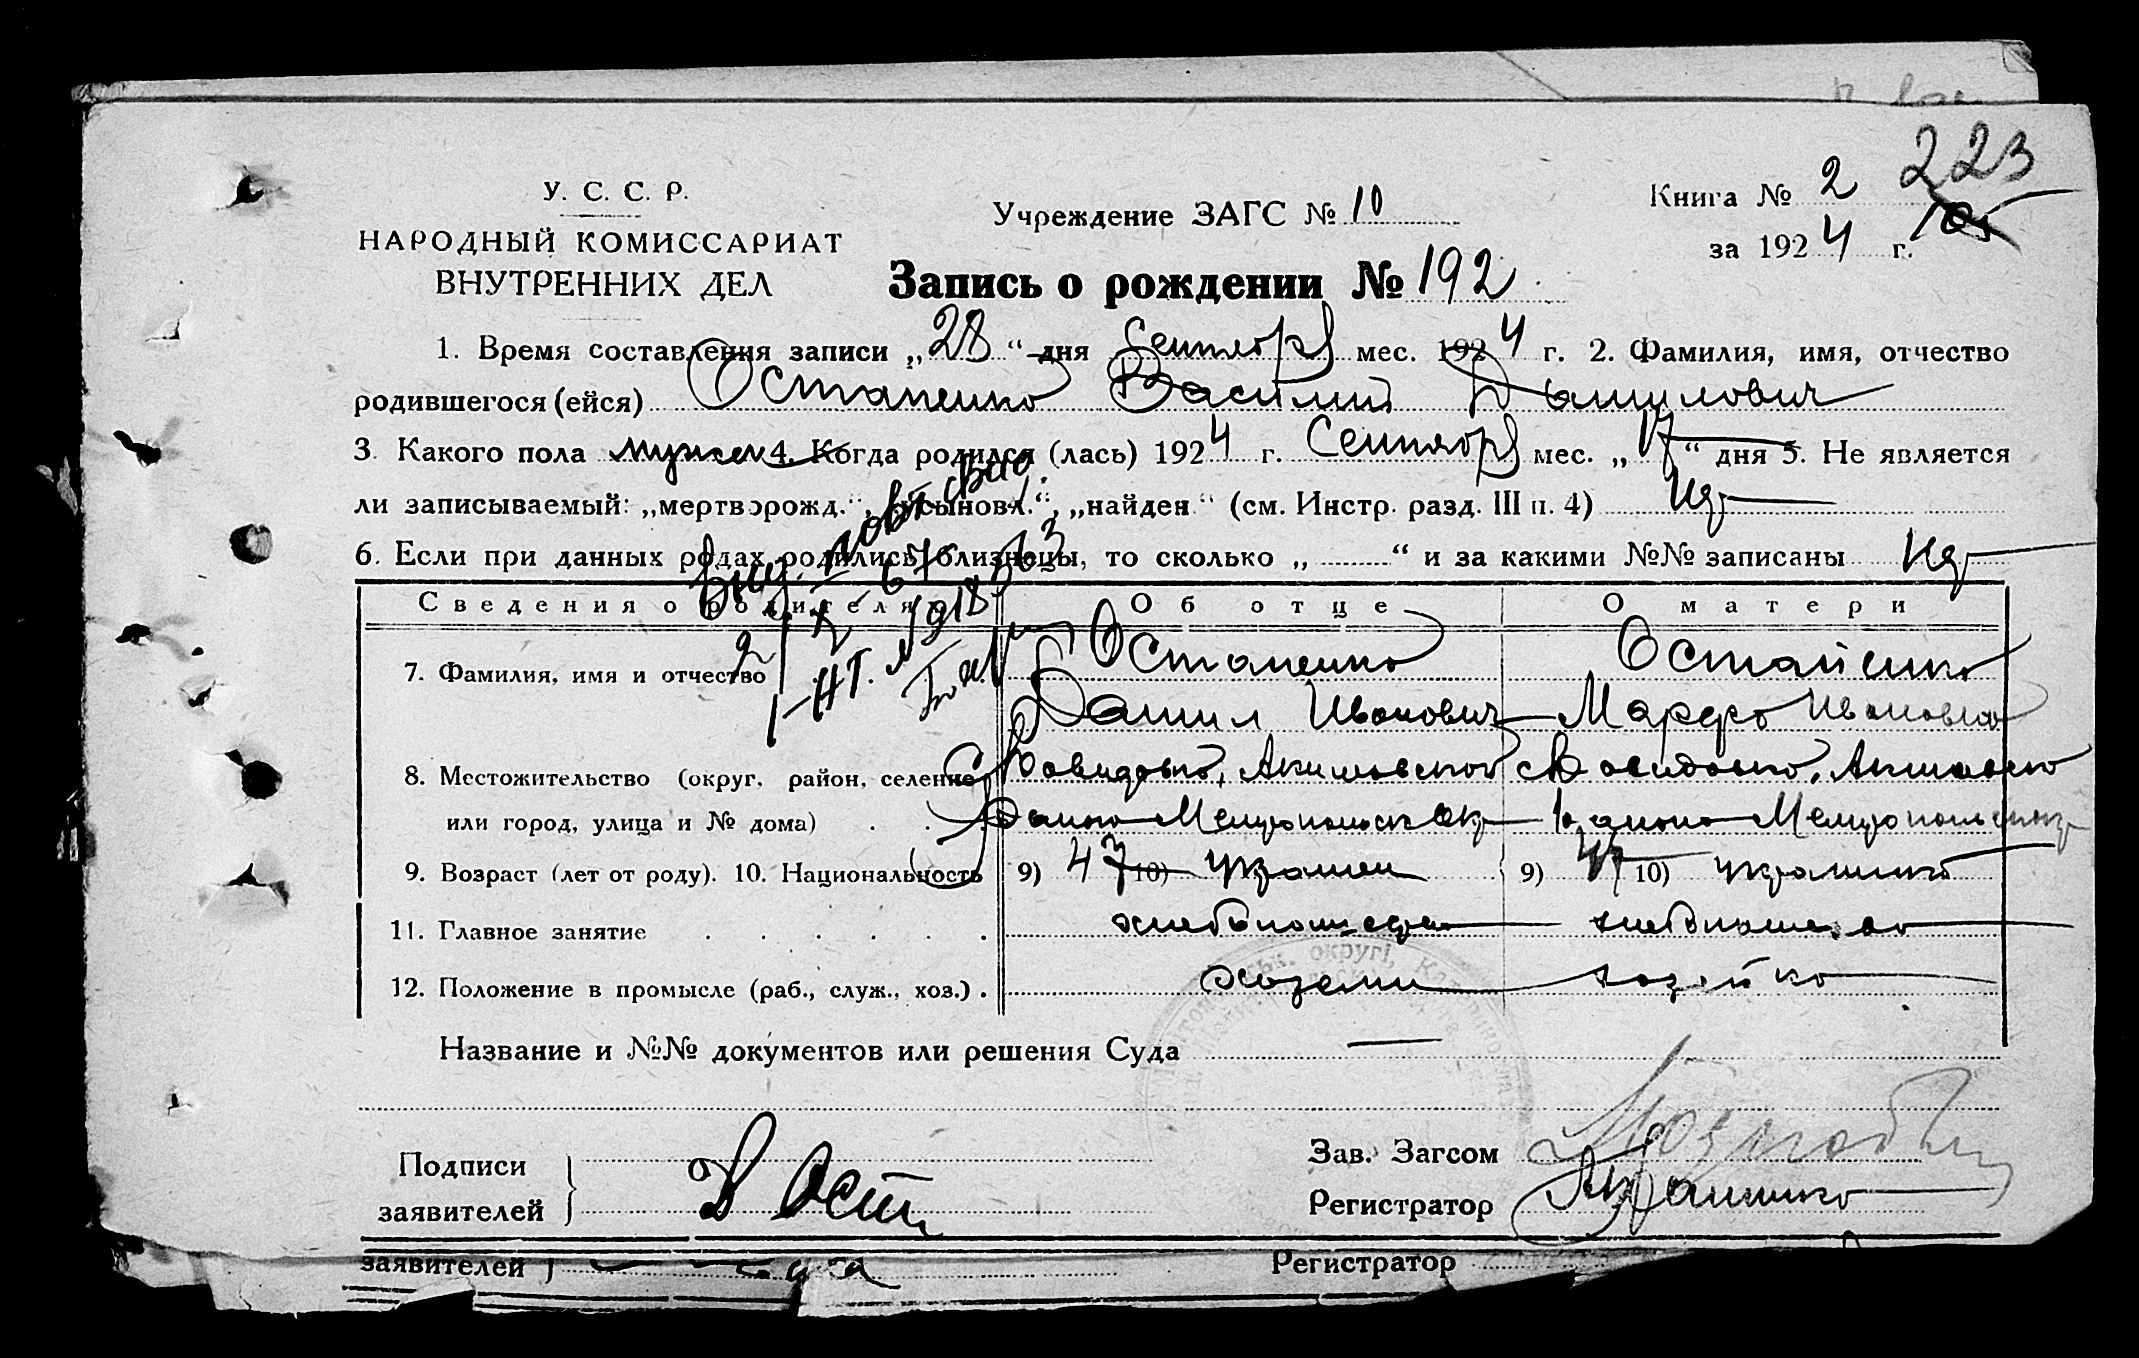 У. С. С. Р.
НАРОДНЫЙ КОМИССАРИАТ
ВНУТРЕННИХ ДЕЛ
Учреждение ЗАГС № 10
Книга № 2 223
за 1924 г.
Запись о рождении № 192
1. Время составления записи „28“ дня Сентября мес. 1924 г. 2. Фамилия, имя, отчество
родившегося (ейся) Остапенко Василий Данилович
3. Какого пола мужск 4. Когда родился (лась) 1924 г. Сентября мес. „17“ дня 5. Не является
ли записываемый: „мертворожд.“, „усыновл.“, „найден“ (см. Инстр. разд. III п. 4) Нет
6. Если при данных родах родились близнецы, то сколько „ “ и за какими №№ записаны Нет
Сведения о родителях Об отце О матери
7. Фамилия, имя и отчество Остапенко Остапенко
Данил Иванович Марфа Ивановна
8. Местожительство (округ, район, селение С Давидовка, Акимовской С Давидовка, Акимовско
или город, улица и № дома) Района Мелитопольск окр района Мелитопольск окр
9. Возраст (лет от роду). 10. Национальность 9) 47 10) украинец 9) 47 10) украинка
11. Главное занятие хлебопашество хлебопашество
12. Положение в промысле (раб., служ., хоз.) . хозяин хозяйка
Название и №№ документов или решения Суда —
Подписи
заявителей
Д Ост
Зав. Загсом
Регистратор
заявителей
Регистратор